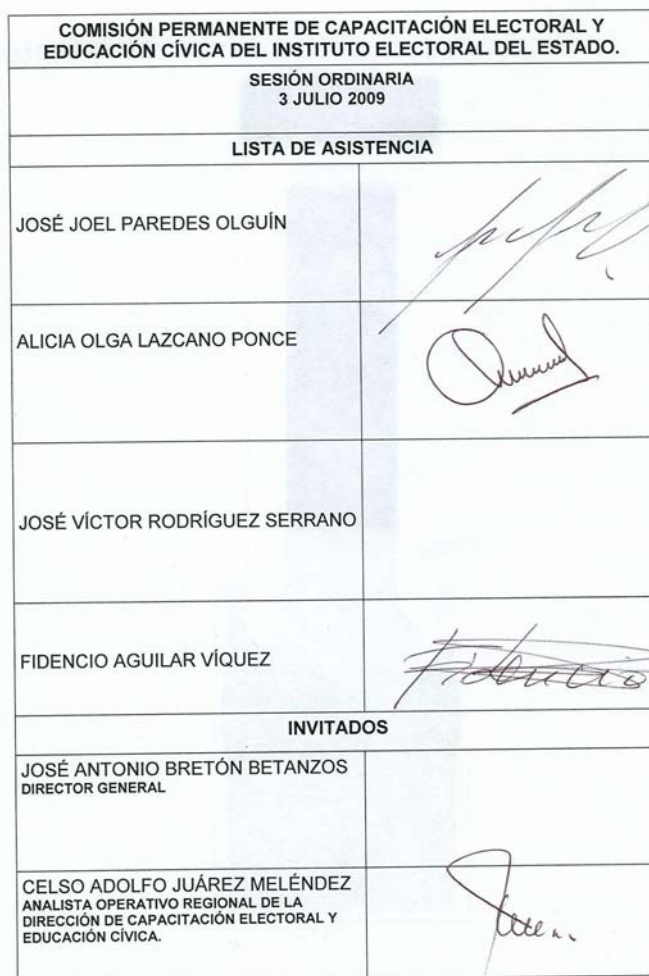 COMISIÓN PERMANENTE DE CAPACITACIÓN ELECTORAL Y
EDUCACIÓN CÍVICA DEL INSTITUTO ELECTORAL DEL ESTADO.
SESIÓN ORDINARIA
3 JULIO 2009
LISTA DE ASISTENCIA
JOSÉ JOEL PAREDES OLGUÍN
ALICIA OLGA LAZCANO PONCE
JOSÉ VÍCTOR RODRÍGUEZ SERRANO
FIDENCIO AGUILAR VÍQUEZ
Fidencio
INVITADOS
JOSÉ ANTONIO BRETÓN BETANZOS
DIRECTOR GENERAL
CELSO ADOLFO JUÁREZ MELÉNDEZ
ANALISTA OPERATIVO REGIONAL DE LA
DIRECCIÓN DE CAPACITACIÓN ELECTORAL Y
EDUCACIÓN CÍVICA.